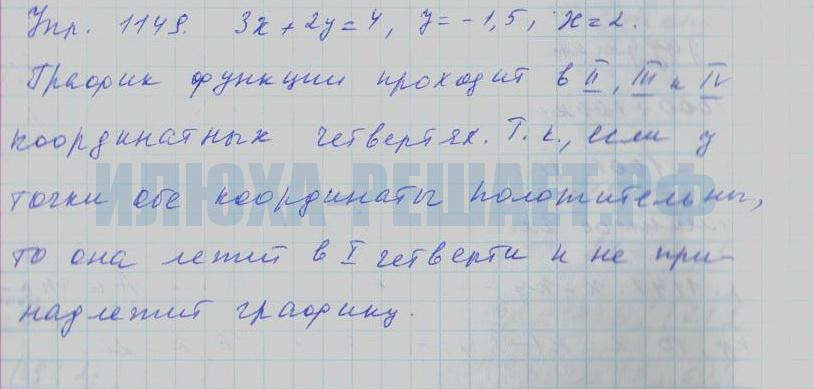 Упр. 1149. 3x + 2y = 4, y = -1,5, x = 2.
График функции проходит в II, III и IV
координатных четвертях. Т.к., если у
точки обе координаты положительны,
ИЛЮХА-РЕШАЕТ.РФ
то она лежит в I четверти и не при-
надлежит графику.